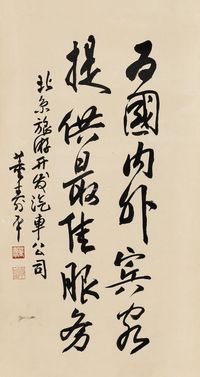 为國内外宾客
提供最佳服务
北京旅游开发汽車公司
董寿平